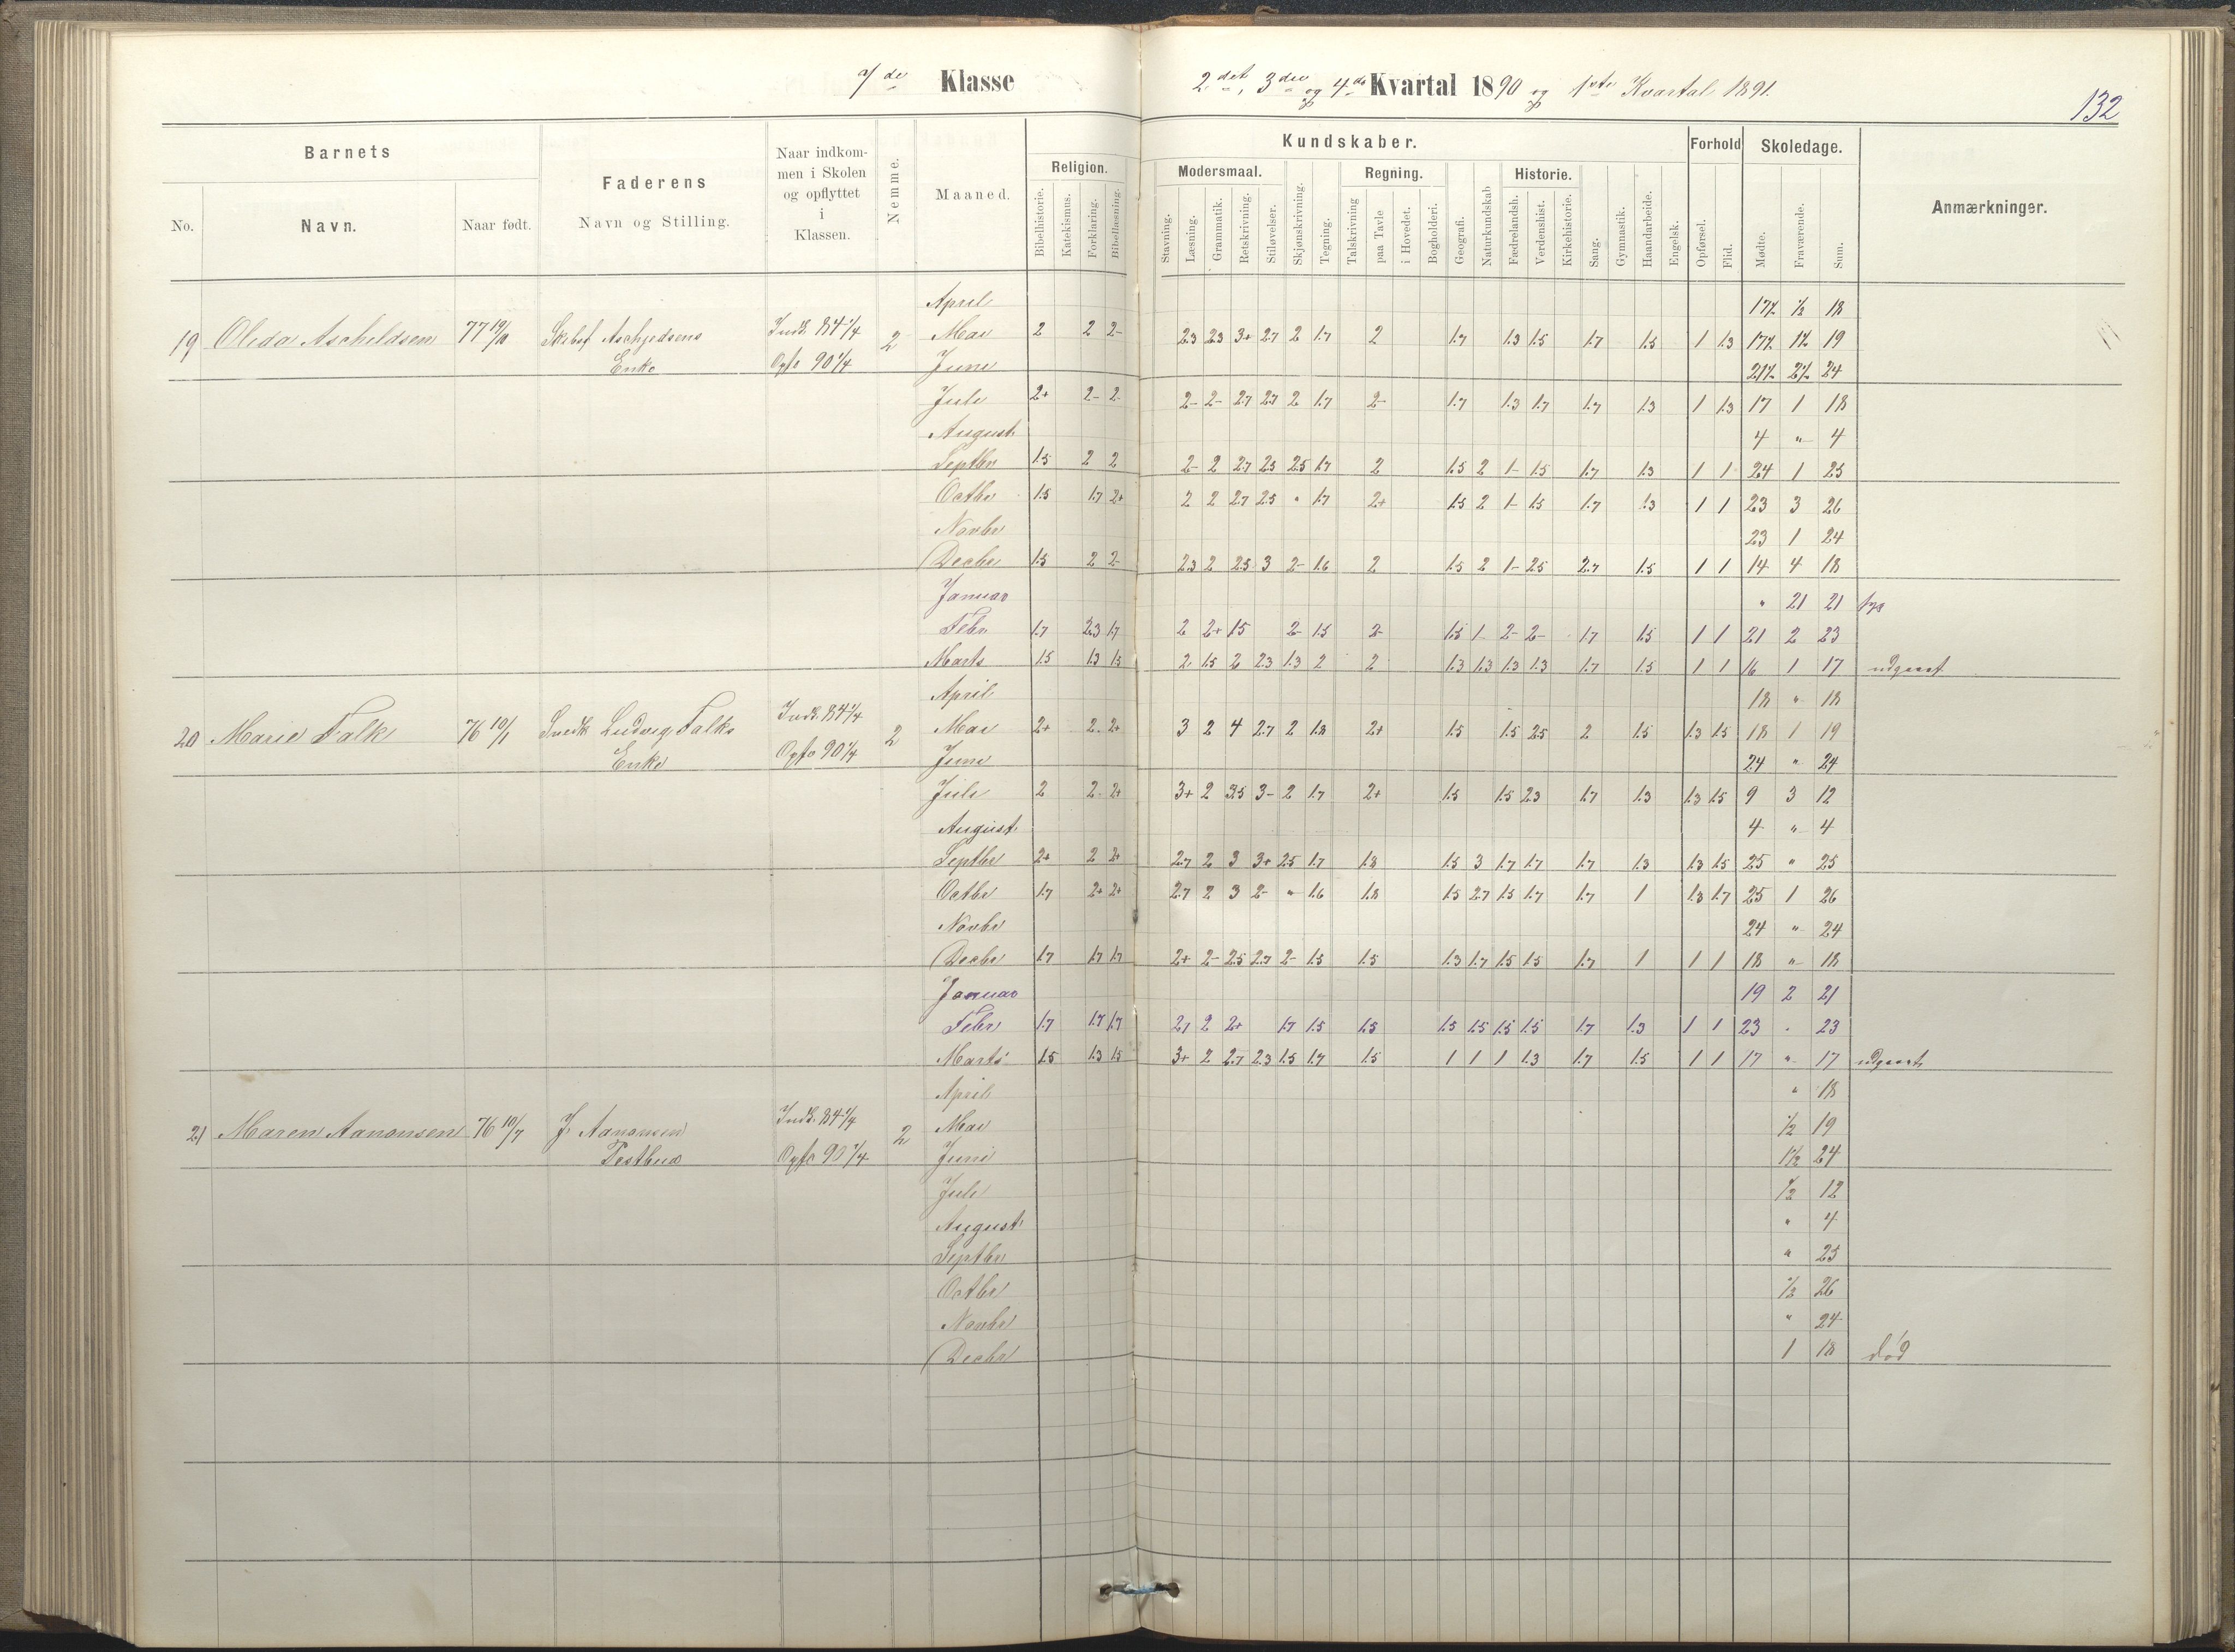 7de Klasse 2det, 3die og 4de Kvartal 1890 og 1ste Kvartal 1891.
132
Barnets Faderens Naar indkommen i Skolen og opflyttet i Klassen. Nemme. Maaned. Kundskaber. Forhold Skoledage. Anmærkninger.
Religion. Modersmaal. Regning. Historie.
No. Navn. Naar født. Navn og Stilling. Bibelhistorie. Katekismus. Forklaring. Bibellæsning. Stavning. Læsning. Grammatik. Retskrivning. Stiløvelser. Skjønskrivning. Tegning. Talskrivning paa Tavle i Hovedet. Bogholderi. Geografi. Naturkundskab Fædrelandsh. Verdenshist. Kirkehistorie. Sang. Gymnastik. Haandarbeide. Engelsk. Opførsel. Flid. Mødte. Fraværende. Sum.
April 17½ ½ 18
19 Olida Ascheldsen 77 Aschjedsens Indk. 84 1/4 2 Mai 2 2 2- 2.3 2.3 3+ 2.7 2 1.7 2 1.7 1.3 1.5 1.7 1.5 1 1.3 17½ 1½ 19
Enke Opfl 90 1/4 Juni 21½ 2½ 24
Juli 2+ 2- 2- 2- 2- 2.7 2.7 2 1.7 2- 1.7 1.3 1.7 1.7 1.3 1 1.3 17 1 18
August 4 " 4
Septbr 1.5 2 2 2- 2 2.7 2.5 2.5 1.7 2 1.5 2 1- 1.5 1.7 1.3 1 1 24 1 25
Octbr 1.5 1.7 2+ 2 2 2.7 2.5 " 1.7 2+ 1.5 2 1- 1.5 1.7 1.3 1 1 23 3 26
Novbr 23 1 24
Decbr 1.5 2 2- 2.3 2 2.5 3 2- 1.6 2 1.5 2 1- 2.5 2.7 1.5 1 1 14 4 18
Januar " 21 21
Febr 1.7 2.3 1.7 2 2+ 1.5 2- 1.5 2- 1.5 1 2- 2- 1.7 1.5 1 1 21 2 23
Marts 1.5 1.3 1.5 2 1.5 2 2.3 1.3 2 2 1.3 1.3 1.3 1.3 1.7 1.5 1 1 16 1 17 udgaaet
April 18 " 18
20 Marie Falk 76 10/1 Ludvig Falks Indk. 84 1/4 2 Mai 2+ 2- 2+ 3 2 4 2.7 2 1.8 2+ 1.5 1.5 2.5 2 1.5 1.3 1.5 18 1 19
Enke Opfl 90 1/4 Juni 24 " 24
Juli 2 2- 2+ 3+ 2 3.5 3- 2 1.7 2+ 1.5 1.5 2.3 1.7 1.3 1.3 1.5 9 3 12
August 4 " 4
Septbr 2+ 2 2+ 2.7 2 3 3+ 2.5 1.7 1.8 1.5 3 1.7 1.7 1.7 1.3 1.3 1.5 25 " 25
Octbr 1.7 2+ 2+ 2.7 2 3 2- " 1.6 1.8 1.5 2.7 1.5 1.7 1.7 1 1.3 1.7 25 1 26
Novbr 24 " 24
Decbr 1.7 1.7 1.7 2+ 2- 2.5 2.7 2- 1.5 1.5 1.3 1.7 1.5 1.5 1.7 1 1 1 18 " 18
Januar 19 2 21
Febr 1.7 1.7 1.7 2.7 2 2+ 1.7 1.5 1.5 1.5 1.5 1.5 1.5 1.7 1.3 1 1 23 " 23
Marts 1.5 1.3 1.5 3+ 2 2.7 2.3 1.5 1.7 1.5 1 1 1 1.3 1.7 1.5 1 1 17 " 17 udgaaet
April " 18
21 Maren Aanonsen 76 10/7 J. Aanonsen Indk. 84 1/4 2 Mai ½ 19
Postbud Opfl 90 1/4 Juni 1½ 24
Juli ½ 12
August " 4
Septbr " 25
Octbr ½ 26
Novbr " 24
Decbr 1 18 død